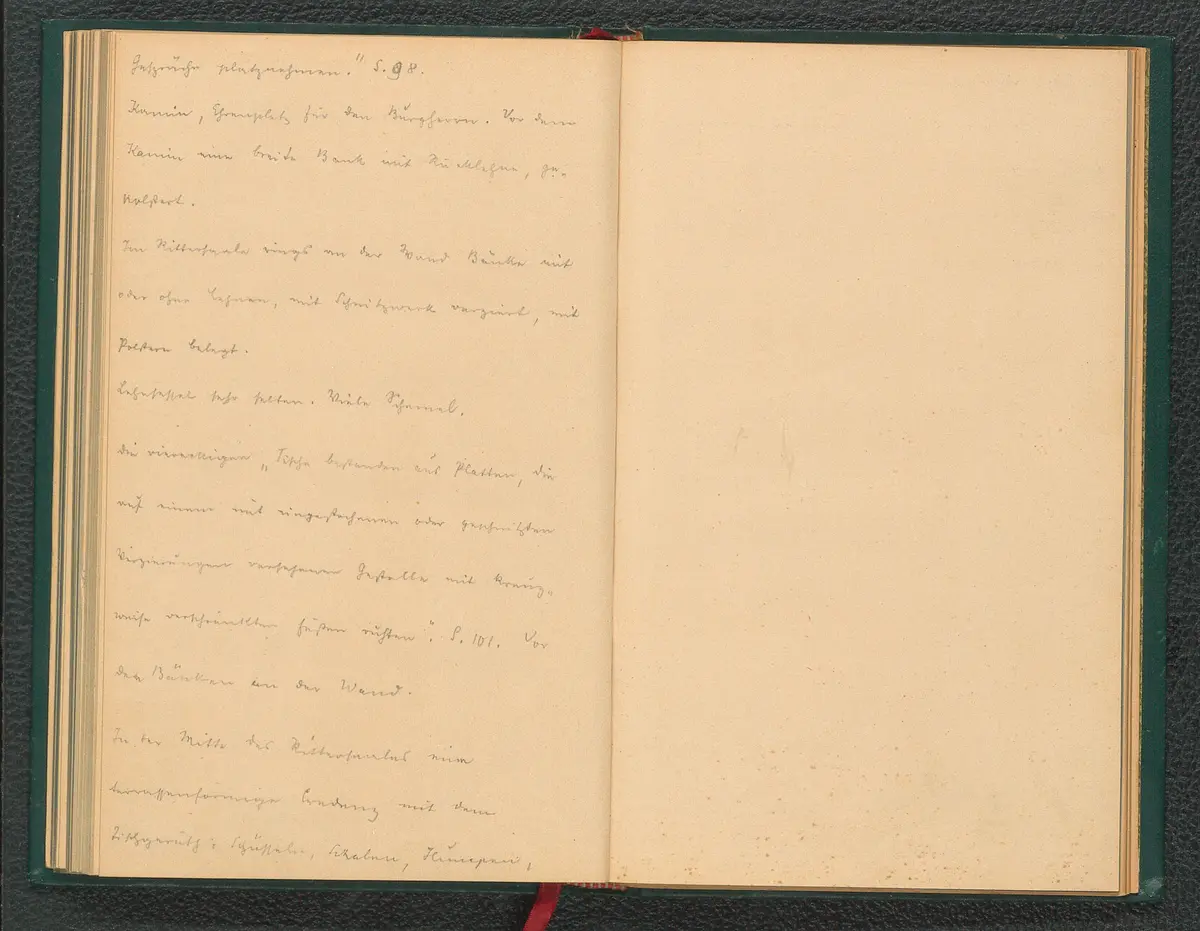 Gespräche platznehmen." S. 98.
Kamin, Ehrenplatz für den Burgherrn. Vor dem
Kamin eine breite Bank mit Rücklehne, ge-
polstert.
Im Rittersaale rings an der Wand Bänke mit
oder ohne Lehnen, mit Schnitzwerk verziert, mit
Polstern belegt.
Lehnsessel sehr selten. Viele Schemel.
Die viereckigen „Tische bestanden aus Platten, die
auf einem mit eingestochenen oder geschnitzten
Verzierungen versehenen Gestelle mit kreuz-
weise verschränkten Füßen ruhten". S. 101. Vor
den Bänken an der Wand.
In der Mitte des Rittersaales eine
terrassenförmige Credenz mit dem
Tischgeräth: Schüsseln, Schalen, Humpen,